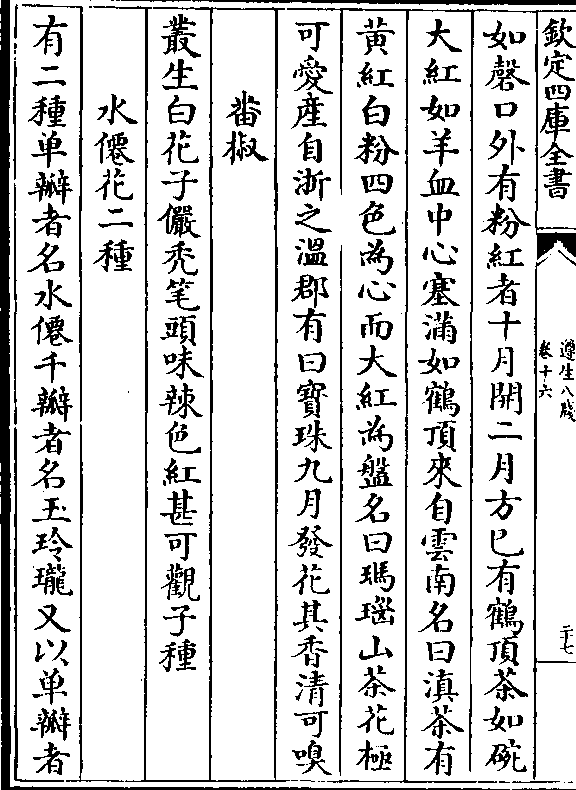 欽定四庫全書
遵生八牋
卷十六
二十七
如磬口外有粉紅者十月開二月方已有鶴頂茶如碗
大紅如羊血中心塞滿如鶴頂來自雲南名曰滇茶有
黃紅白粉四色為心而大紅為盤名曰瑪瑙山茶花極
可愛産自浙之溫郡有曰寶珠九月發花其香清可嗅
畨椒
叢生白花子儼禿笔頭味辣色紅甚可觀子種
水僊花二種
有二種单瓣者名水僊千瓣者名玉玲瓏又以单瓣者